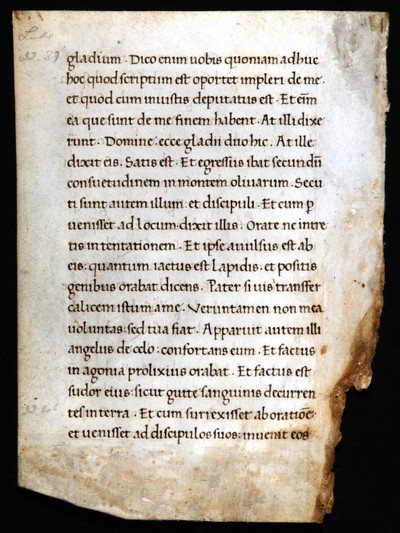 Luke
22. 37
gladium . Dico enim uobis quoniam adhuc
hoc quod scriptum est oportet impleri de me .
et quod cum iniustis deputatus est . Et eni̅
ea que sunt de me finem habent . At illi dixe
runt . Domine . ecce gladii duo hic . At ille
dixit eis . Satis est . Et egressus ibat secundu̅
consuetudinem in montem oliuarum . Secu
ti sunt autem illum . et discipuli . Et cum p
uenisset ad locum . dixit illis . Orate ne intre
tis in tentationem . Et ipse auulsus est ab
eis . quantum iactus est lapidis . et positis
genibus orabat dicens . Pater si uis transfer
calicem istum a me . Veruntamen non mea
uoluntas . sed tua fiat . Apparuit autem illi
angelus de celo . confortans eum . Et factus
in agonia prolixius orabat . Et factus est
sudor eius . sicut gutte sanguinis decurren
tes in terra . Et cum surrexisset ab oratio̅e .
et uenisset ad discipulos suos . inuenit eos